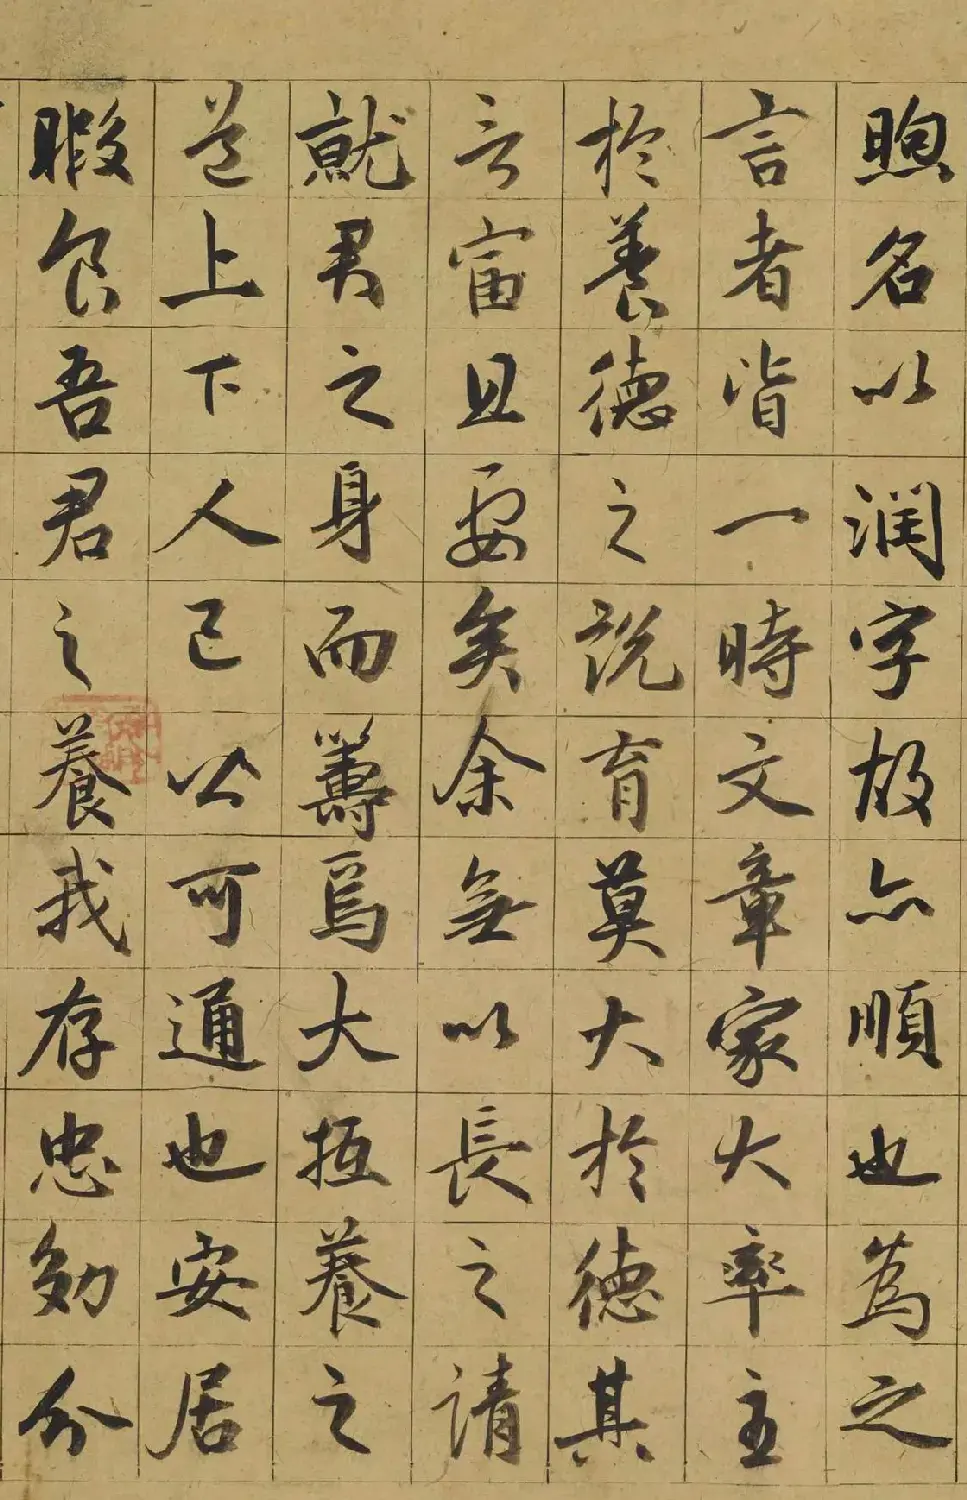 煦名以潤字故亦順也為之
言者皆一時文章家大率主
於養德之説育莫大於德其
言富且要矣余無以長之請
就君之身而籌焉大抵養之
道上下人己可通也安居
暇食吾君之養我存忠効分